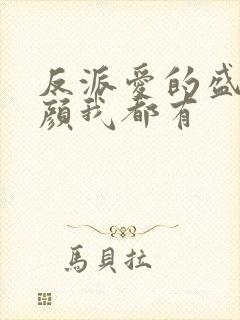 反派愛的盛
顏我都有
馬貝拉